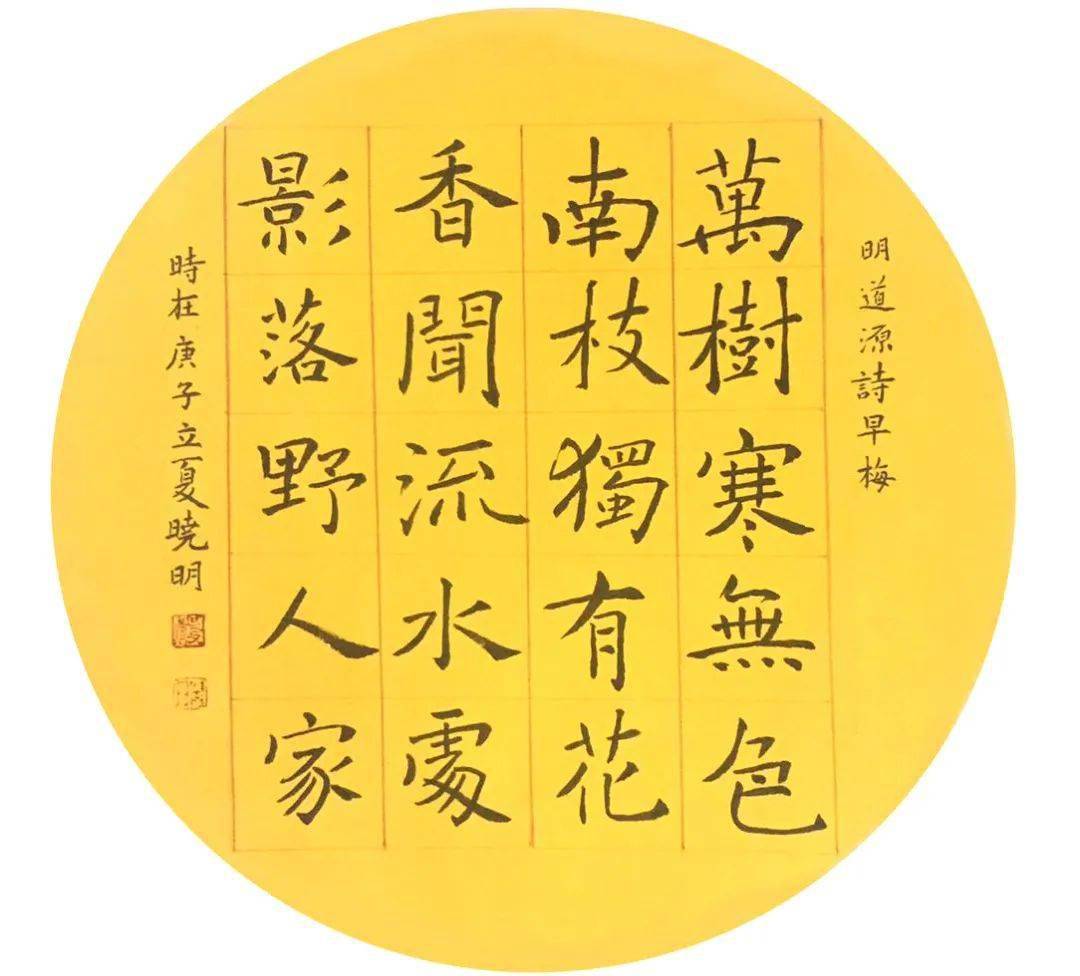 明道源詩早梅
萬樹寒無色
南枝獨有花
香聞流水處
影落野人家
時在庚子立夏曉明